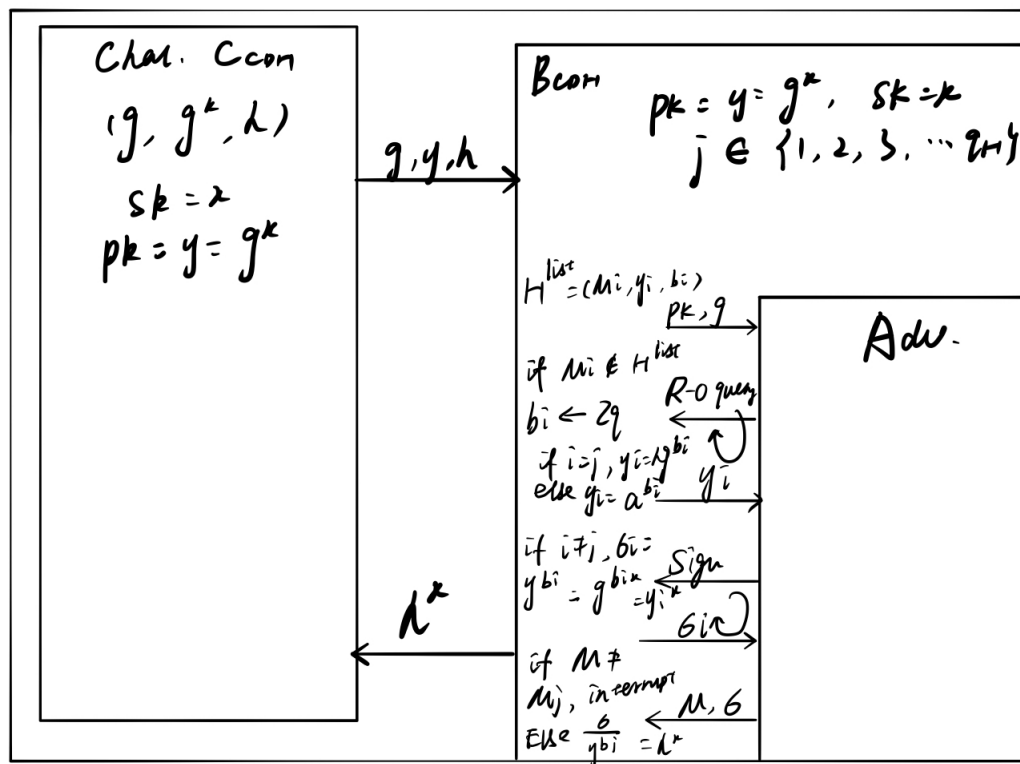 Chal. Ccon
(g, g^x, h)
sk = x
pk = y = g^x
g, y, h
h^x
Bcon
pk = y = g^x, sk = x
j ∈ {1, 2, 3, ... qH}
H^list = (Mi, yi, bi)
pk, g
Adv.
if Mi ∉ H^list
R-O query
bi ← Zq
if i=j, yi=hg^bi
else yi= a^bi
yi
if i≠j, 6i=
Sign
y^bi = g^bix = yi^x
6i
if M ≠
Mj, interrupt
M, 6
Else 6/y^bi = h^x